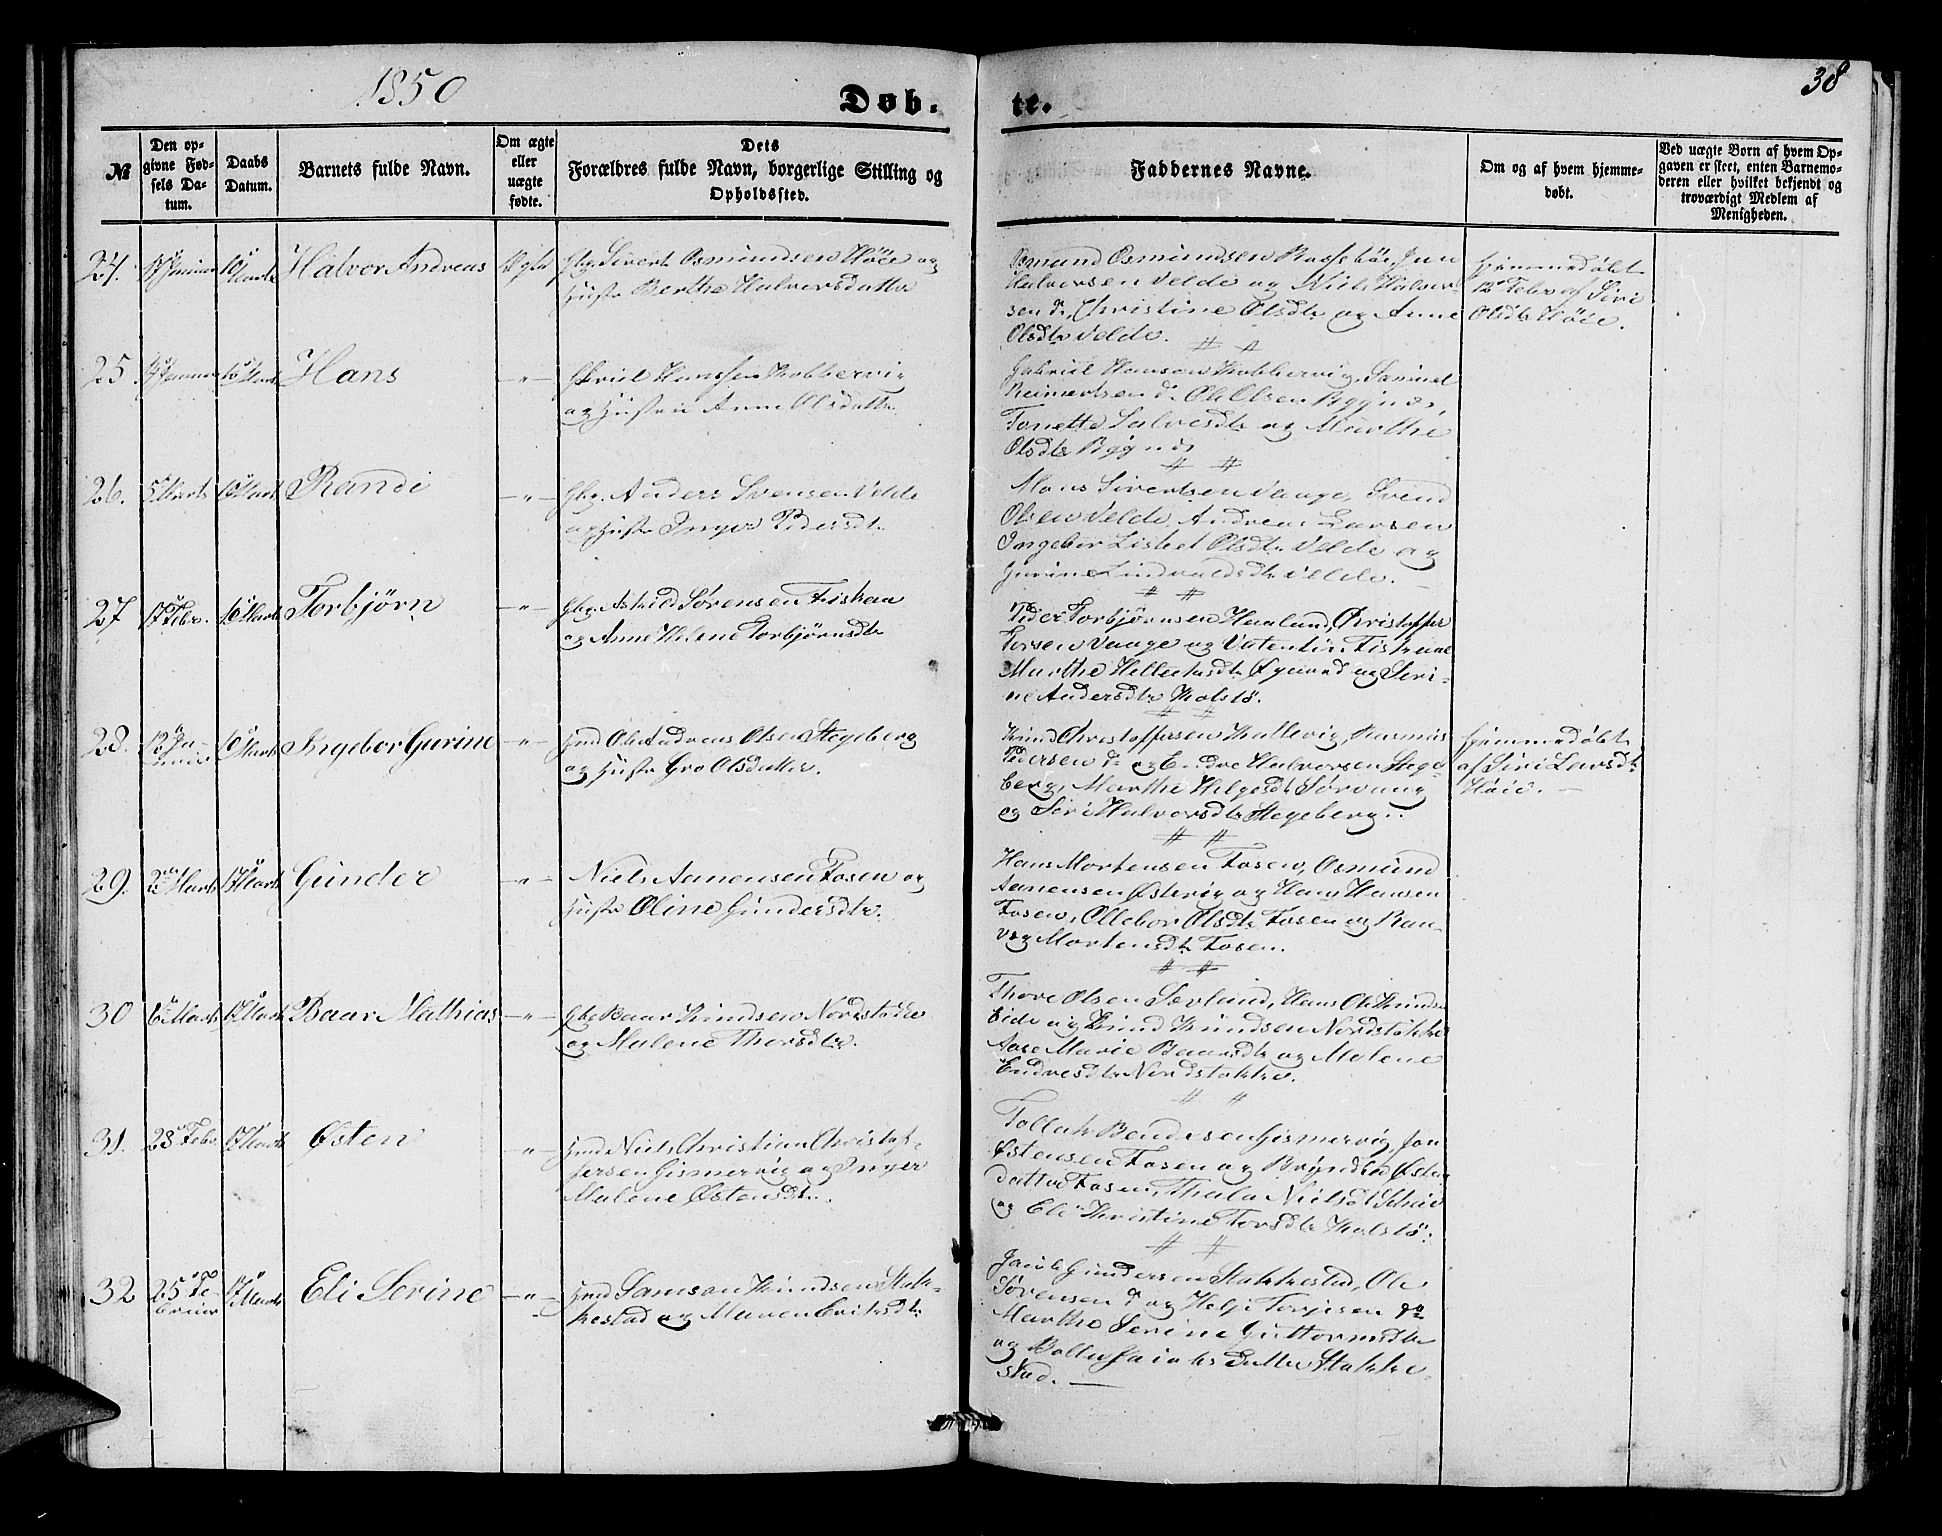 1850
Døb-
te.
38
№
Den op-
givne Fød-
sels Da-
tum.
Daabs
Datum.
Barnets fulde Navn.
Om ægte
eller
uægte
fødte.
Dets
Forældres fulde Navn, borgerlige Stilling og
Opholdssted.
Faddernes Navne.
Om og af hvem hjemme-
døbt.
Ved uægte Børn af hvem Op-
gaven er skeet, enten Barnemo-
deren eller hvilket bekjendt og
troværdigt Medlem af
Menigheden.
24.
10 Marts
Halvor Andreas
Gbr. Sivert Osmundsen Høie og
Hustr Berthe Halvorsdatter
Osmund Osmundsen
Halvorsen Velde og Niels Halvor-
sen do, Christine Olsdtr og Anne
Olsdtr Velde.
hjemmedøbt
12 Febr af Siri
Olsdtr Høie.
25
10 Marts
Hans
— " —
Hansen Kobbervig
og Hustru Anne Olsdatter
Gabriel Hansen Kobbervig, Samuel
Reinertsen do Ole Olsen Bygnæs,
Tonette Salvesdtr og Marthe
Olsdtr Bygnæs
26.
5 Marts
10 Marts
Randi
— " —
Gbr. Anders Svensen Velde
og Hustr Inger Pedersdtr
Mons Sivertsen Vaage, Svend
Olsen Velde, Andreas Larsen
Ingebor Lisbet Olsdtr Velde og
Gurine Velde.
27
17 Febr.
10 Marts
Torbjørn
— " —
Gbr. Sørensen Fiskaa
og Anne Helene Torbjørnsdtr
Peder Torbjørnsen Haaland, Christoffer
Torsen Vaage og Valentin Fiskaae
Marthe Øygard og Seri-
ne Andersdtr Kolstø.
28.
12 Ja-
nuar
10 Marts
Ingebor Gurine
— " —
Hmd Ole Andreas Olsen Stegeberg
og Hustr Gro Olsdatter.
Knud Christoffersen Kallevig, Rasmus
Pedersen do og Endre Halvorsen Stege-
berg, Marthe Helgesdtr Sørvaag
og Siri Halvorsdtr Stegeberg.
hjemmedøbt
af Siri Larsdtr
Høie. —
29.
2 Marts
17 Marts
Gunder
— " —
Niels Aanensen Fosen og
Hustr Oline Gundersdtr.
Hans Mortensen Fosen, Osmund
Aanensen Østevig og Hans Hansen
Fosen, Ollebor Olsdtr Fosen og Ran-
vog Mortensdtr Fosen.
30
6 Marts
17 Marts
Baar Mathias
— " —
Gbr Baar Knudsen Nordstokke
og Malene Thorsdtr.
Thore Olsen Sævland, Hans Ole Knuds
Eide og Knud Knudsen Nordstokke
Aase Marie Baarsdtr og Malene
Endresdtr Nordstokke.
31.
28 Febr
17 Marts
Østen
— " —
Hmd Niels Christian Christof-
fersen Gismervig og Inger
Malene Østensdtr.
Tollak Bendixsen Gismervig, Jon
Østensen Fosen og Brynild Østen
datter Fosen, Thala Nielsdtr
og Eli Kristine Torsdtr Kolstø.
32
25 Fe-
bruar
17 Marts
Eli Serine
— " —
Hmd Samson Knudsen Stok-
kestad og Maren Eriksdtr
Jacob Gundersen Stokkestad, Ole
Sørensen do og Helje Torjesen do
Marthe Serine Guttormsdtr
og Jacobsdatter Stokke-
stad. —